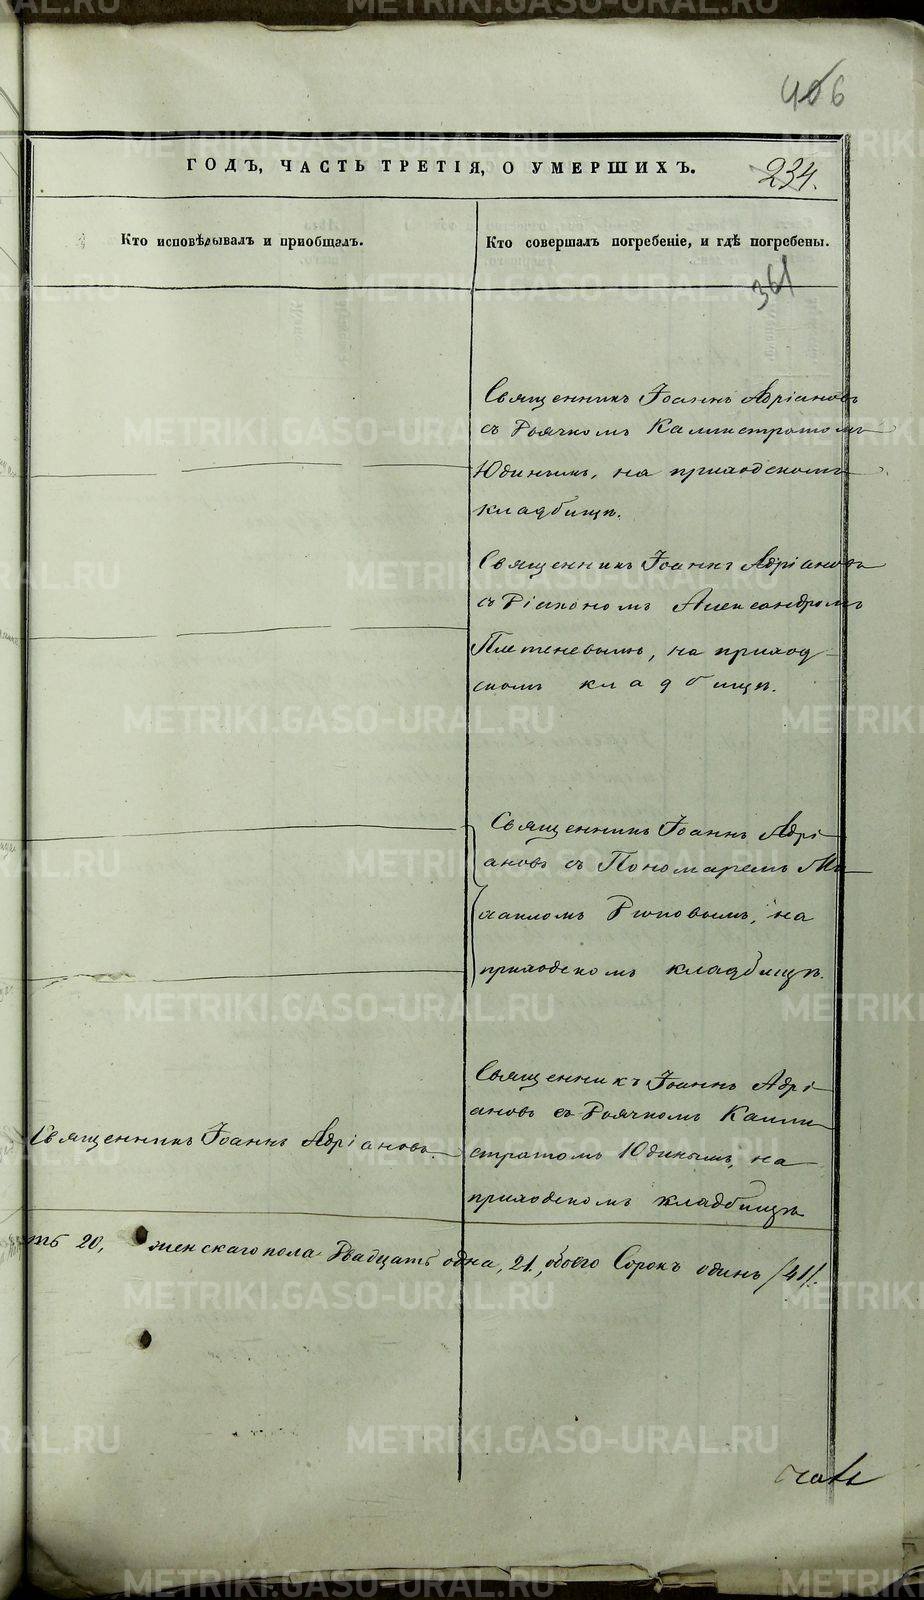 406
ГОДЪ, ЧАСТЬ ТРЕТІЯ, О УМЕРШИХЪ.
234.
Кто исповѣдывалъ и пріобщалъ.
Кто совершалъ погребеніе, и гдѣ погребены.
361
Священникъ Іоаннъ Адріановъ
съ Дьячкомъ Каллистратомъ
Юдинымъ, на приходскомъ
кладбищѣ.
Священникъ Іоаннъ Адріановъ
съ Діакономъ Александромъ
Плетеневымъ, на приход-
скомъ кладбищѣ.
Священникъ Іоаннъ Адрі-
ановъ съ Пономаремъ Ми-
хаиломъ на
приходскомъ кладбищѣ.
Священникъ Іоаннъ Адріановъ.
Священникъ Іоаннъ Адрі-
ановъ съ Дьячкомъ Калли-
стратомъ Юдинымъ, на
приходскомъ кладбищѣ
ть 20, женскаго пола Двадцать одна, 21, обоего Сорокъ одинъ /41/.
METRIKI.GASO-URAL.RU